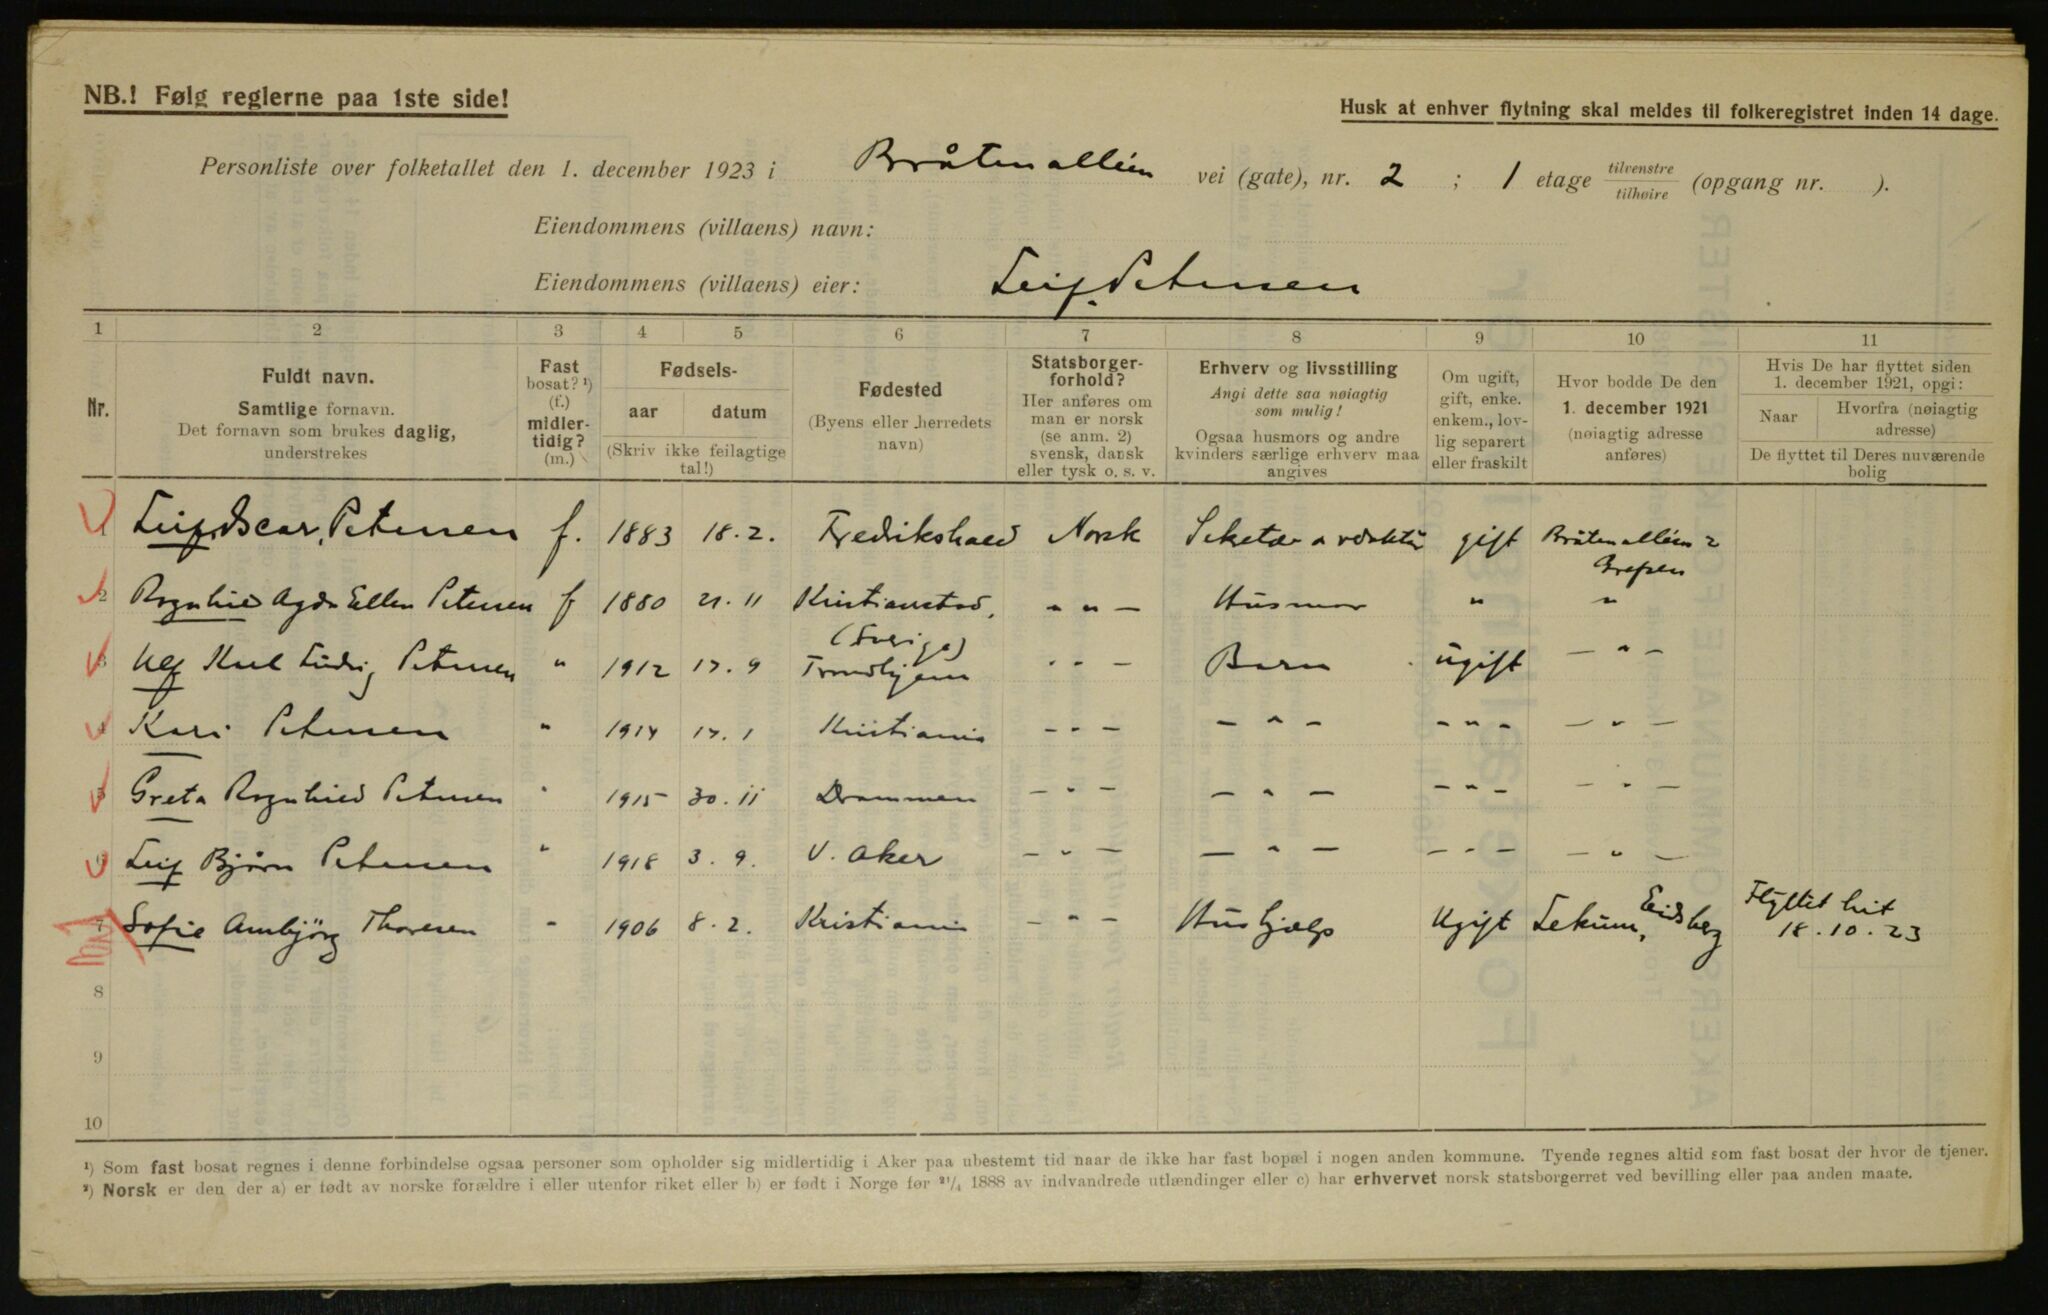 NB.! Følg reglerne paa 1ste side!
Husk at enhver flytning skal meldes til folkeregistret inden 14 dage.
Personliste over folketallet den 1. december 1923 i Bråtenalléen vei (gate), nr. 2 ; 1 etage tilvenstre tilhøire (opgang nr. ).
Eiendommens (villaens) navn:
Eiendommens (villaens) eier: Leif Petersen
1 2 3 4 5 6 7 8 9 10 11
Nr.
Fuldt navn.
Samtlige fornavn.
Det fornavn som brukes daglig,
understrekes
Fast
bosat? ¹)
(f.)
midler-
tidig?
(m.)
Fødsels-
aar datum
(Skriv ikke feilagtige
tal!)
Fødested
(Byens eller herredets
navn)
Statsborger-
forhold?
Her anføres om
man er norsk
(se anm. 2)
svensk, dansk
eller tysk o. s. v.
Erhverv og livsstilling
Angi dette saa nøiagtig
som mulig!
Ogsaa husmors og andre
kvinders særlige erhverv maa
angives
Om ugift,
gift, enke.
enkem., lov-
lig separert
eller fraskilt
Hvor bodde De den
1. december 1921
(nøiagtig adresse
anføres)
Hvis De har flyttet siden
1. december 1921, opgi:
Naar Hvorfra (nøiagtig
adresse)
De flyttet til Deres nuværende
bolig
1 Leif Oscar Petersen f. 1883 18.2. Fredrikshald Norsk Sekretær o redaktør gift Bråtenalléen 2
Grefsen
2 Ragnhild Agda Ellen Petersen f 1880 21.11 Kristianstad, " " — Husmor " "
(Sverige)
3 Ulf Karl Ludvig Petersen " 1912 17.9 Trondhjem " " — Barn ugift — " —
4 Kari Petersen " 1914 17.1 Kristiania — " — — " — — " — — " —
5 Greta Ragnhild Petersen " 1915 30.11 Drammen — " — — " — — " — — " —
6 Leif Bjørn Petersen " 1918 3.9. V. Aker — " — — " — — " — — " —
7 Sofie Ambjörg Thoresen " 1906 8.2. Kristiania — " — Hushjælp Ugift Lekum, Eidsberg Flyttet hit
18.10.23
8
9
10
¹) Som fast bosat regnes i denne forbindelse ogsaa personer som opholder sig midlertidig i Aker paa ubestemt tid naar de ikke har fast bopæl i nogen anden kommune. Tyende regnes altid som fast bosat der hvor de tjener.
²) Norsk er den der a) er født av norske forældre i eller utenfor riket eller b) er født i Norge før ²¹/₄ 1888 av indvandrede utlændinger eller c) har erhvervet norsk statsborgerret ved bevilling eller paa anden maate.